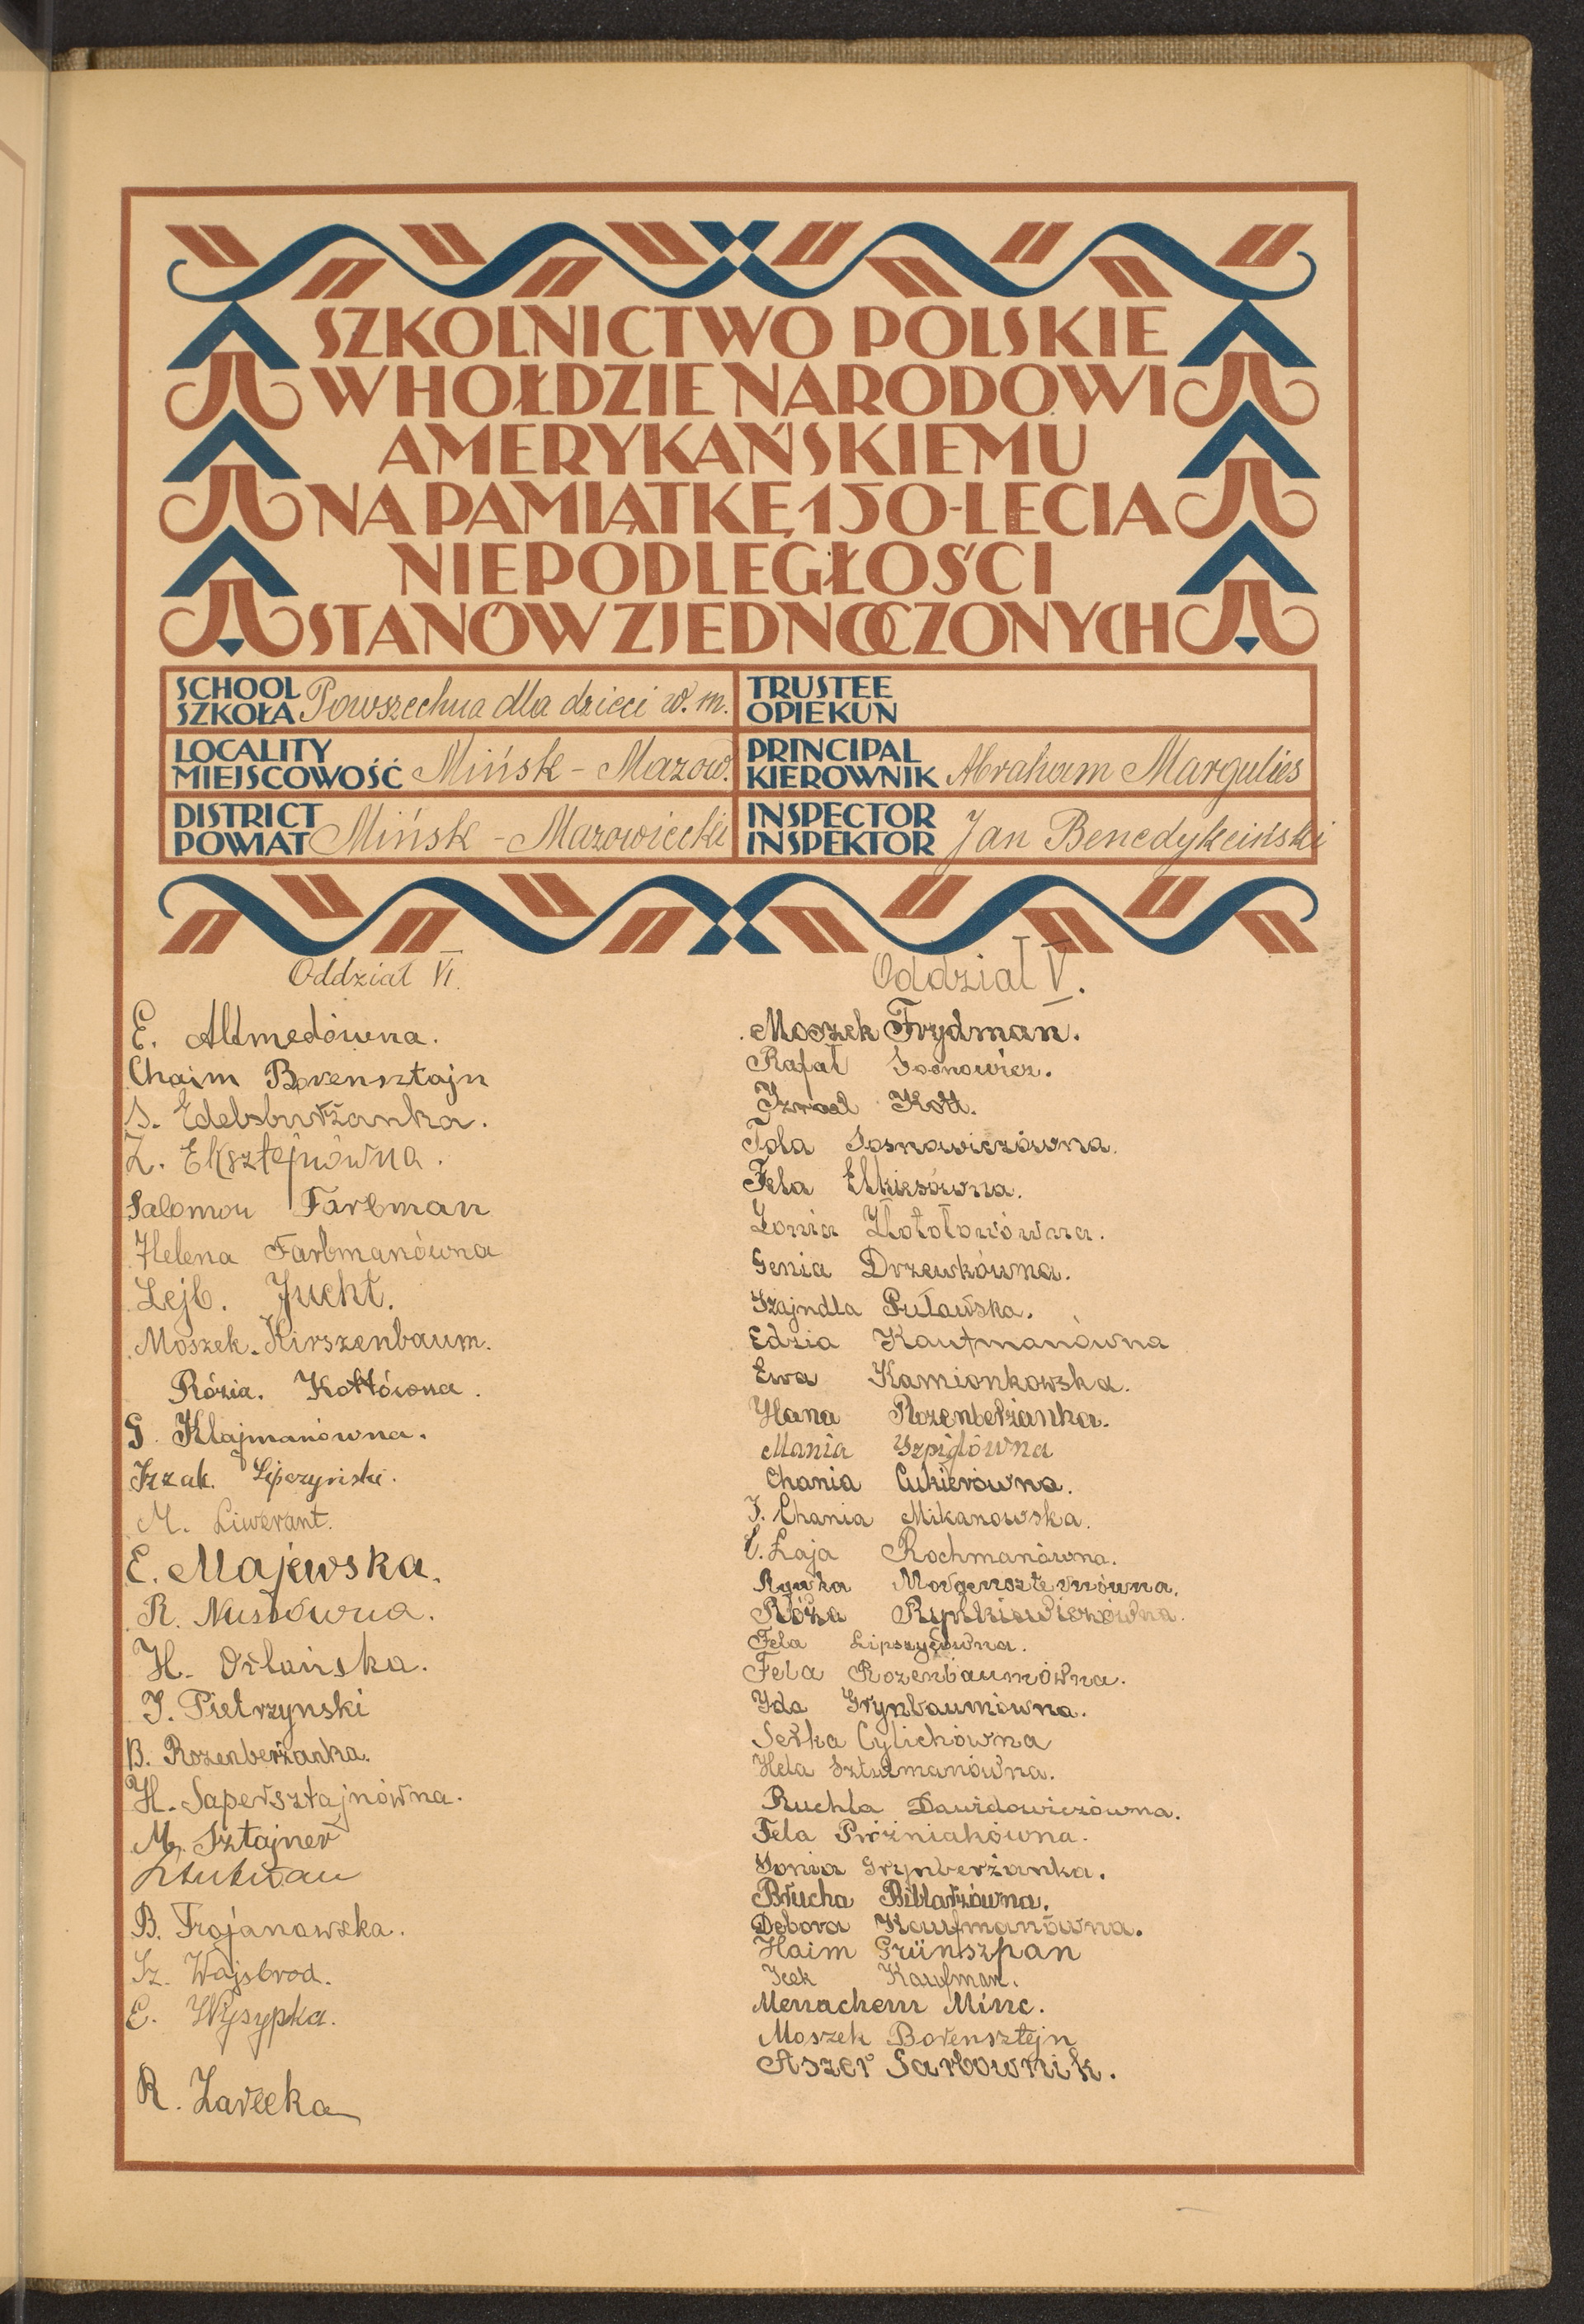 SZKOLNICTWO POLSKIE
W HOŁDZIE NARODOWI
AMERYKAŃSKIEMU
NA PAMIĄTKĘ 150-LECIA
NIEPODLEGŁOŚCI
STANÓW ZJEDNOCZONYCH
SCHOOL
SZKOŁA Powszechna dla dzieci w. m.
TRUSTEE
OPIEKUN
LOCALITY
MIEJSCOWOŚĆ Mińsk - Mazow.
PRINCIPAL
KIEROWNIK Abraham Margulies
DISTRICT
POWIAT Mińsk - Mazowiecki
INSPECTOR
INSPEKTOR Jan Benedykciński
Oddział VI.
E. Altmedówna.
Chaim Borensztajn
S. Edelsburżanka.
Z. Eksztejnówna.
Salomon Farbman
Helena Farbmanówna
Lejb. Jucht.
Moszek. Kirszenbaum.
Rózia. Kottówna.
G. Klajmanówna.
Iczak. Lipczyński.
M. Liwerant.
E. Majewska.
R. Nussówna.
H. Orlańska.
J. Pietrzynski
B. Rozenberżanka.
H. Sapersztajnówna.
M. Sztajner
B. Trojanowska.
Sz. Wajsbrod.
E. Wysypka.
R. Zarecka
Oddział V.
Moszek Frydman.
Rafał Sosnowicz.
Izrael Kott.
Tola Sosnowiczówna.
Fela Elkiesówna.
Zonia Złotołowówna.
Genia Drzewkówna.
Szajndla Puławska.
Edzia Kaufmanówna
Ewa Kamionkowska.
Hana Rozenberżanka.
Mania Szpiglówna
Chania Cukierówna.
J. Chania Mikanowska.
C. Łaja Rochmanówna.
Rywka Morgenszternówna.
Róża Rynkiewiczówna.
Fela Lipszycówna.
Fela Rozenbaumówna.
Ida Grynbaumówna.
Serka Cylichówna
Hela Sztulmanówna.
Ruchla Dawidowiczówna.
Fela Próżniakówna.
Sonia Grynberżanka.
Brucha Bitlarzówna.
Debora Kaufmanówna.
Haim Grünszpan
Icek Kaufman.
Menachem Minc.
Moszek Borensztejn
Aszer Sarbownik.